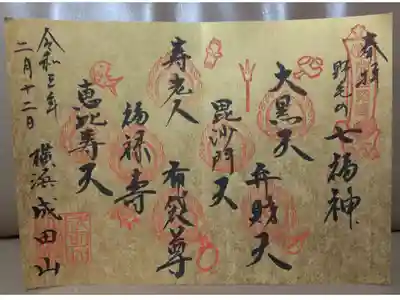 奉拝
野毛の七福神
大黒天
弁財天
毘沙門天
寿老人
布袋尊
福禄寿
恵比寿天
令和五年
二月十二日
横浜成田山